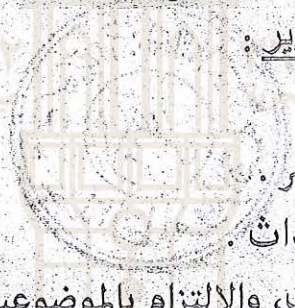 ير :
ر .
داث .
، والالتزام بالموضوعي